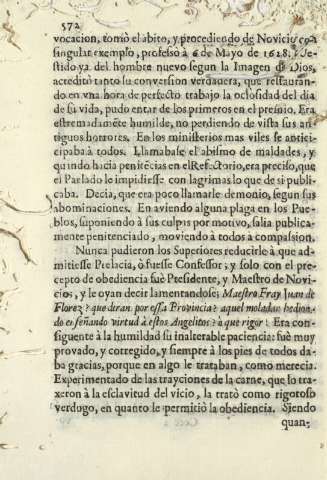 572
vocacion, tomò el abito, y procediendo de Novicio con
singular exemplo, professò à 6 de Mayo de 1628. Ve-
stido ya del hombre nuevo segun la Imagen de Dios,
acreditò tanto su conversion verdadera, que restauran-
do en vna hora de perfecto trabajo la ociosidad del dia
de su vida, pudo entar de los primeros en el premio. Era
estremadamẽte humilde, no perdiendo de vista sus an-
tiguos horrores. En los ministerios mas viles se antici-
paba à todos. Llamabase el abismo de maldades, y
quando hacia penitẽcias en el Refectorio, era preciso, que
el Parlado le impidiesse con lagrimas lo que de si publi-
caba. Decia, que era poco llamarle demonio, segun sus
abominaciones. En aviendo alguna plaga en los Pue-
blos, suponiendo à sus culpas por motivo, salia publica-
mente penitenciado, moviendo à todos a compassion.
Nunca pudieron los Superiores reducirle à que ad-
mitiesse Prelacia, ò fuesse Confessor; y solo con el pre-
cepto de obediencia fuè Presidente, y Maestro de Novi-
cios, y le oyan decir lamentandose; Maestro Fray Juan de
Florez? que diran por essa Provincia? aquel moladar hedion-
do enseñando virtud à estos Angelitos? à què rigor! Era con-
siguente à la humildad su inalterable paciencia: fuè muy
provado, y corregido, y siempre à los pies de todos da-
ba gracias, porque en algo le trataban, como merecia.
Experimentado de las trayciones de la carne, que lo tra-
xeron à la esclavitud del vicio, la tratò como rigoroso
verdugo, en quanto le permitiò la obediencia. Siendo
quan-